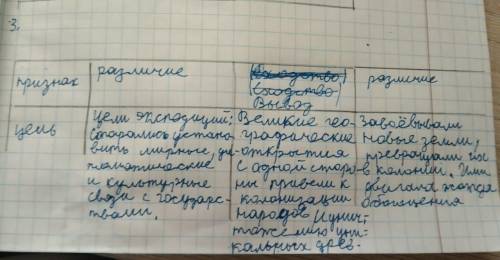 3.
признак
различие
Сходство
Сходство
Вывоз
различие
цель
Цели экспозиций:
старались устано
вить мирные, ди
пломатические
и культурные
связи с государс-
твами.
Великие гео-
графические
открытия
с одной сторо-
ны привели к
колонизации
народов И унич-
тожению уни-
кальных древ-
Завоёвывали
новые земли,
превращали их
в колонии. Ими
двигала жажда
обогащения